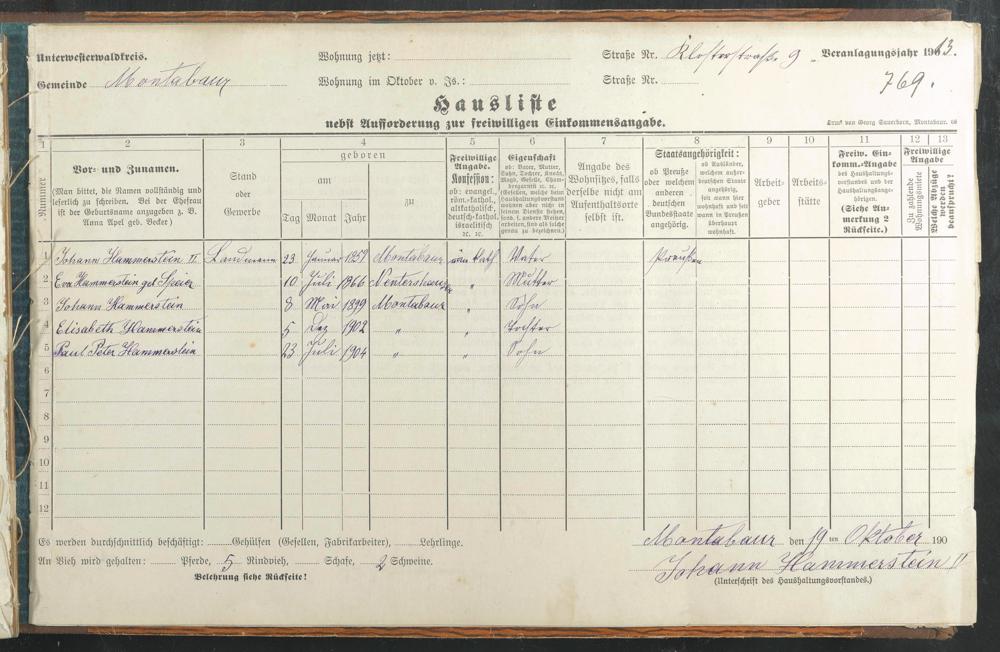 Unterwesterwaldkreis. Wohnung jetzt: Straße Nr. Klosterstraße 9 Veranlagungsjahr 1913.
Gemeinde Montabaur Wohnung im Oktober v. Js.: Straße Nr. 769.
Hausliste
nebst Aufforderung zur freiwilligen Einkommensangabe.
Druck von Georg Sauerborn, Montabaur.
1 2 3 4 5 6 7 8 9 10 11 12 13
Nummer
Vor- und Zunamen.
(Man bittet, die Namen vollständig und
leserlich zu schreiben. Bei der Ehefrau
ist der Geburtsname anzugeben z. B.
Anna Apel geb. Becker.)
Stand
oder
Gewerbe
geboren
am zu
Tag Monat Jahr
Freiwillige
Angabe.
Konfession:
ob: evangel.,
röm.-kathol.,
altkatholisch,
deutsch-kathol.
israelitisch
ec. ec.
Eigenschaft
ob: Vater, Mutter,
Sohn, Tochter, Knecht,
Magd, Geselle, Cham-
bregarnist ec. ec.
(Gesellen, welche beim
Haushaltungsvorstand
wohnen aber nicht in
seinem Dienste stehen,
sond. f. andere Meister
arbeiten, sind als solche
genau zu bezeichnen.)
Angabe des
Wohnsitzes, falls
derselbe nicht am
Aufenthaltsorte
selbst ist.
Staatsangehörigkeit:
ob Preuße
oder welchem
anderen
deutschen
Bundesstaate
angehörig.
ob Ausländer,
welchem außer-
deutschen Staate
angehörig,
seit wann hier
wohnhaft und seit
wann in Preußen
überhaupt
wohnhaft.
Arbeit-
geber
Arbeits-
stätte
Freiw. Ein-
komm.-Angabe
des Haushaltungs-
vorstandes und der
Haushaltungsange-
hörigen.
(Siehe An-
merkung 2
Rückseite.)
Freiwillige
Angabe
Zu zahlende
Wohnungsmiete
Welche Abzüge
werden
beansprucht?
1 Johann Hammerstein II. Landmann 23 Januar 1859 Montabaur röm kath Vater Preußen
2 Eva Hammerstein geb Speier 10 Juli 1866 Nentershausen " Mutter
3 Johann Hammerstein 8 Mai 1899 Montabaur " Sohn
4 Elisabeth Hammerstein 5 Dez 1902 " " Tochter
5 Paul Peter Hammerstein 23 Juli 1904 " " Sohn
6
7
8
9
10
11
12
Es werden durchschnittlich beschäftigt: Gehülfen (Gesellen, Fabrikarbeiter), Lehrlinge.
An Vieh wird gehalten: Pferde, 5 Rindvieh, Schafe, 2 Schweine.
Belehrung siehe Rückseite!
Montabaur den 19 ten Oktober 190
Johann Hammerstein II
(Unterschrift des Haushaltungsvorstandes.)